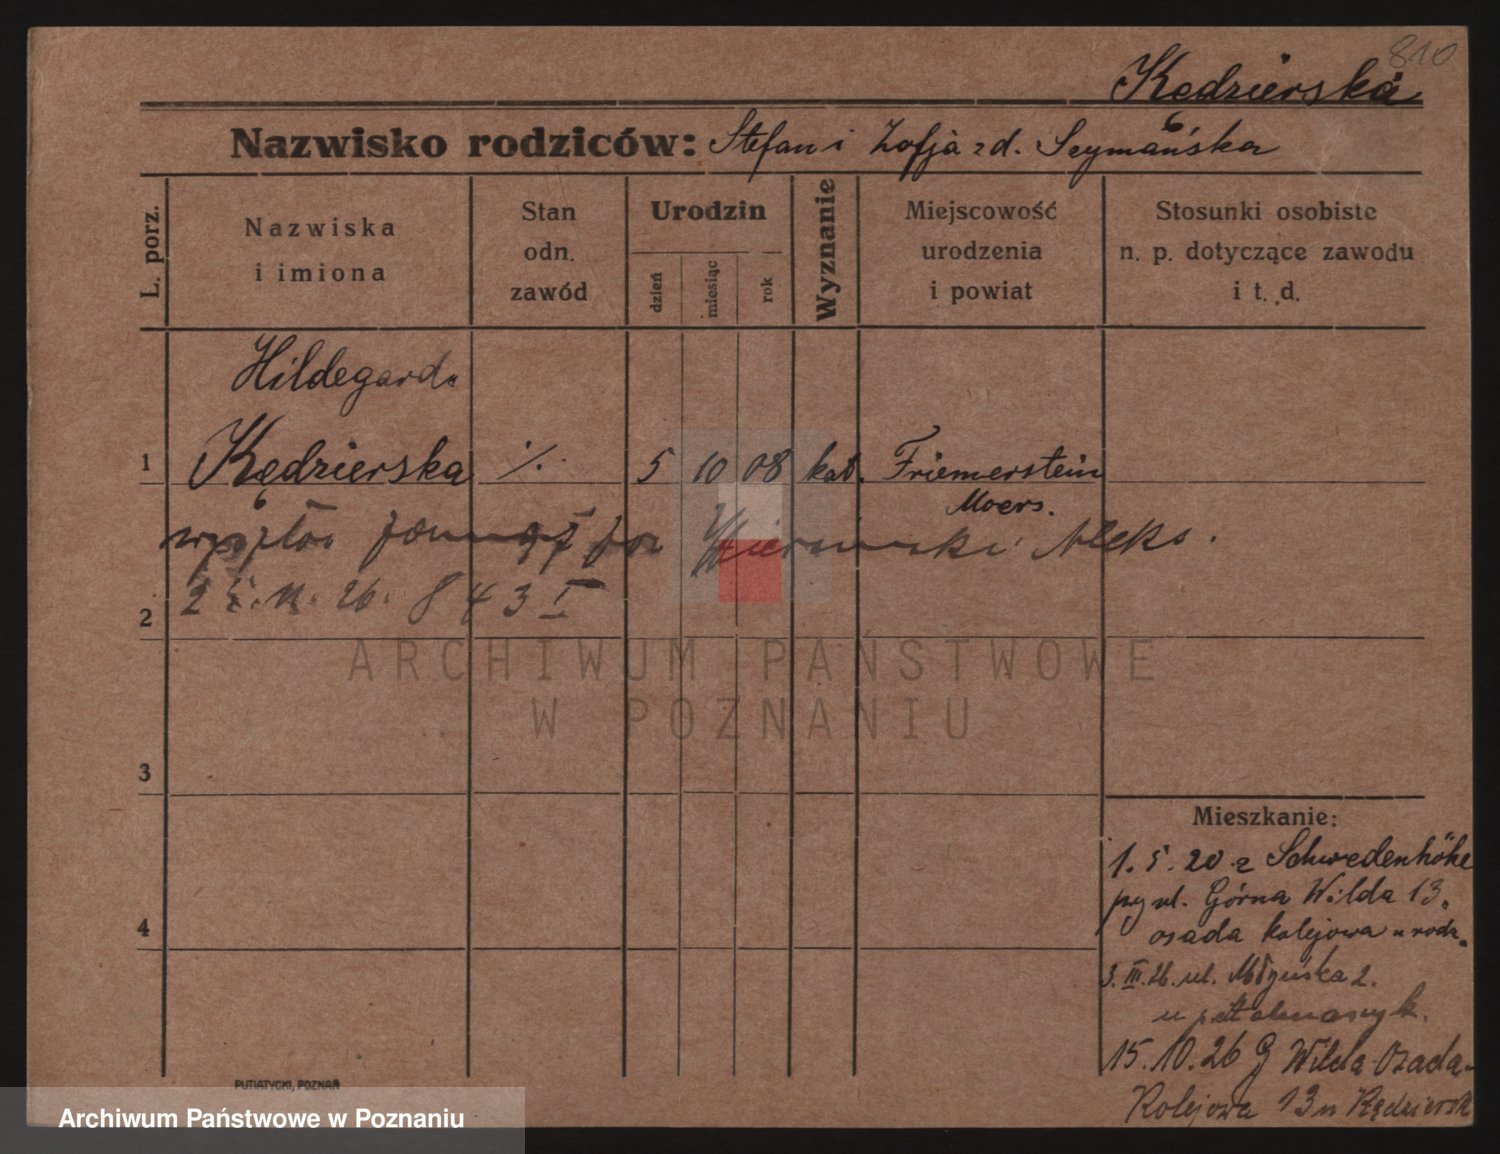 810
Kędzierska
Nazwisko rodziców: Stefan i Zofja z d. Szymańska
L. porz.
Nazwiska
i imiona
Stan
odn.
zawód
Urodzin
dzień
miesiąc
rok
Wyznanie
Miejscowość
urodzenia
i powiat
Stosunki osobiste
n. p. dotyczące zawodu
i t. d.
Hildegarda
1 Kędzierska ·/. 5 10 08 kat. Friemerstein
Moers.
Aleks.
11. 26. 843 I
2
ARCHIWUM PAŃSTWOWE
W POZNANIU
3
4
Mieszkanie:
1. 5. 20 z Schwedenhöhe
ul. Górna Wilda 13.
osada kolejowa u rodz.
3. III. 26. ul.  2.
u
15. 10. 26 G Wilda Osada-
Kolejowa 13 u Kędziersk
PUTIATYCKI, POZNAŃ
Archiwum Państwowe w Poznaniu